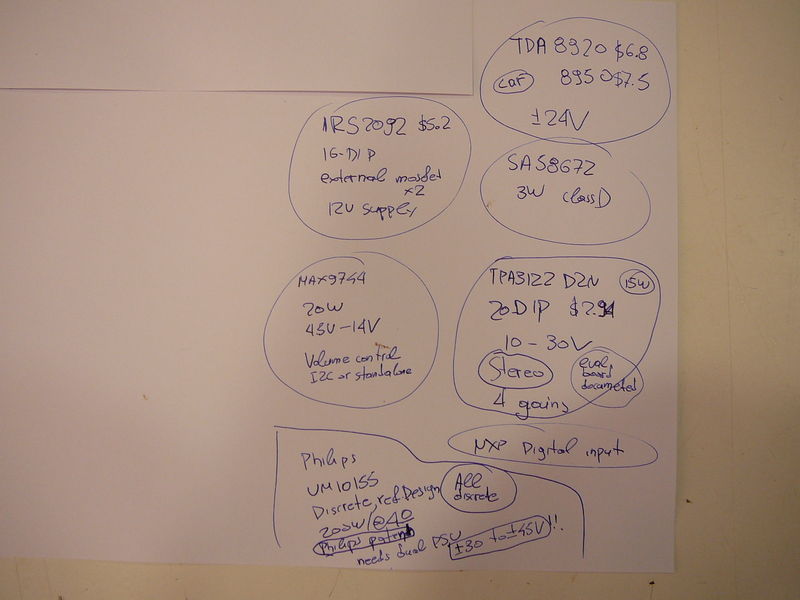 TDA 8920 $6.8
CAF 8950 $7.5
±24V
IRS2092 $5.2
16-DIP
external mosfet
x2
12V supply
SAS8672
3W class D
MAX9744
20W
45V-14V
Volume control
I2C or standalone
TPA3122 D2N 15W
20DIP $2.94
10-30V
Stereo
eval
board
documeted
4 gains
NXP Digital input
Philips
UM10155
Discrete, ref. Design
All
discrete
200W/@4Ω
Philips patent
needs dual PSU ±30 to ±45V!!